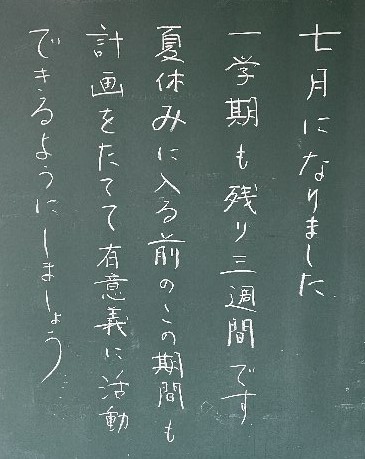 七月になりました
一学期も残り三週間です
夏休みに入る前のこの期間も
計画をたてて有意義に活動
できるようにしましょう